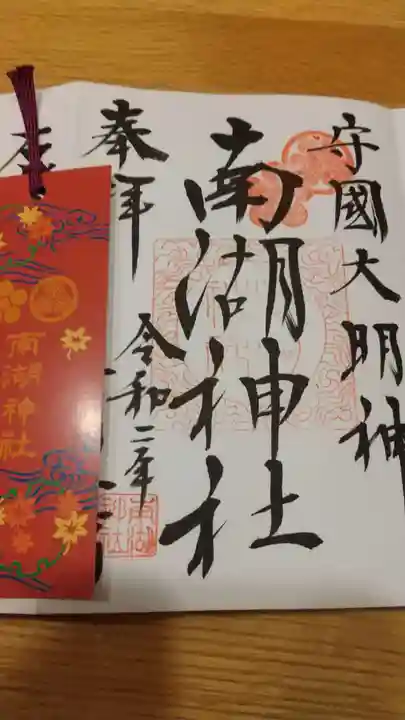 守國大明神
南湖神社
奉拝
令和二年
南湖神社
南湖神社